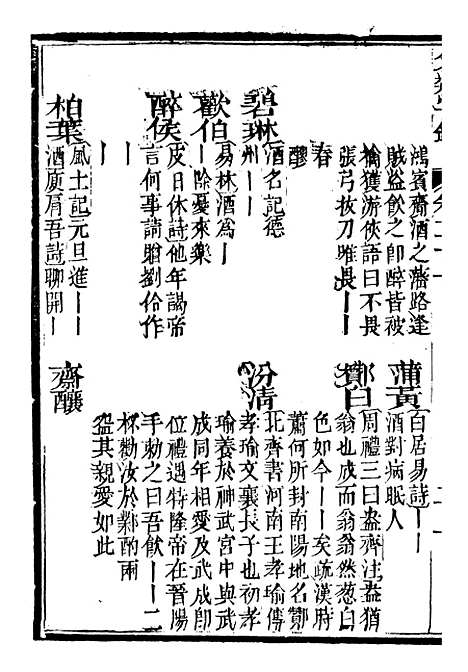 鴻賓齋酒之藩路逢
賊盜飲之即醉皆被
擒獲游俠語曰不畏
張弓拔刀唯畏丨丨
春
醪
碧琳
酒名記德
州丨丨
歡伯
易林酒爲丨
丨除憂來樂
醉侯
皮日休詩他年謁帝
言何事請贈劉伶作
丨
丨
柏葉
風土記元旦進丨丨
酒庾肩吾詩聊開丨丨
蒲黃
白居易詩丨丨
酒對病眠人
酇白
周禮三曰盎齊注盎猶
翁也成而翁翁然葱白
色如今丨丨矣疏漢時
蕭何所封南陽地名酇
汾清
北齊書河南王孝瑜傳
孝瑜文襄長子也初孝
瑜養於神武宮中與武
成同年相愛及武成即
位禮遇特隆帝在晉陽
手勅之曰吾飲丨丨二
杯勸汝於鄴酌兩
盌其親愛如此
齋釀